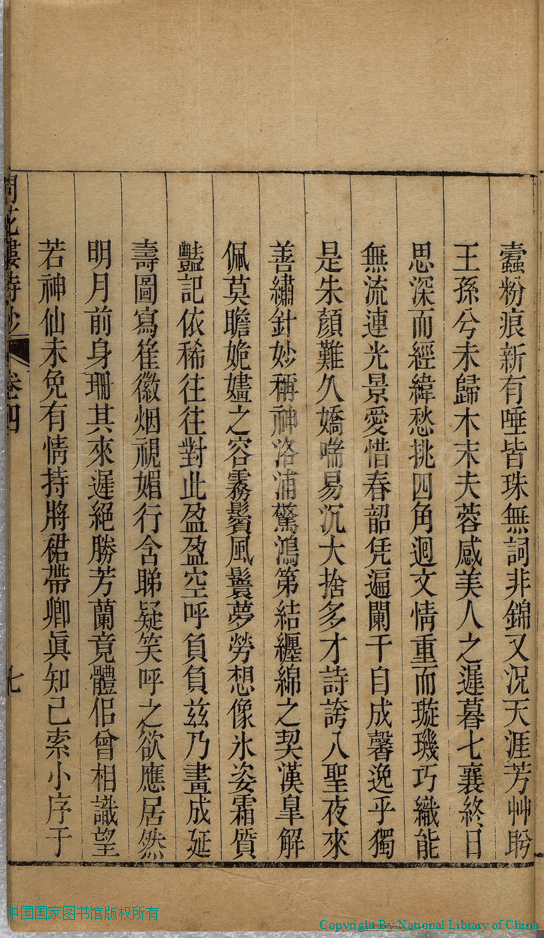 蠹粉痕新有唾皆珠無詞非錦又況天涯芳艸盻
王孫兮未歸木末夫蓉感美人之遲暮七襄終日
思深而經緯愁挑四角迴文情重而璇璣巧織能
無流連光景愛惜春韶凭遍闌干自成馨逸乎獨
是朱顏難久嬌喘易沉大捨多才詩誇八聖夜來
善繡針妙稱神洛浦驚鴻第結纒綿之契漢皐解
佩莫瞻姽嫿之容霧鬢風鬟夢勞想像氷姿霜質
豔記依稀往往對此盈盈空呼負負兹乃畫成延
壽圖寫崔徽烟視媚行含睇疑笑呼之欲應居然
明月前身珊其來遲絕勝芳蘭竟體侶曾相識望
若神仙未免有情持將裙帶卿眞知己索小序于
問花樓詩鈔 卷四 七
中国国家图书馆版权所有
Copyright By National Library of China